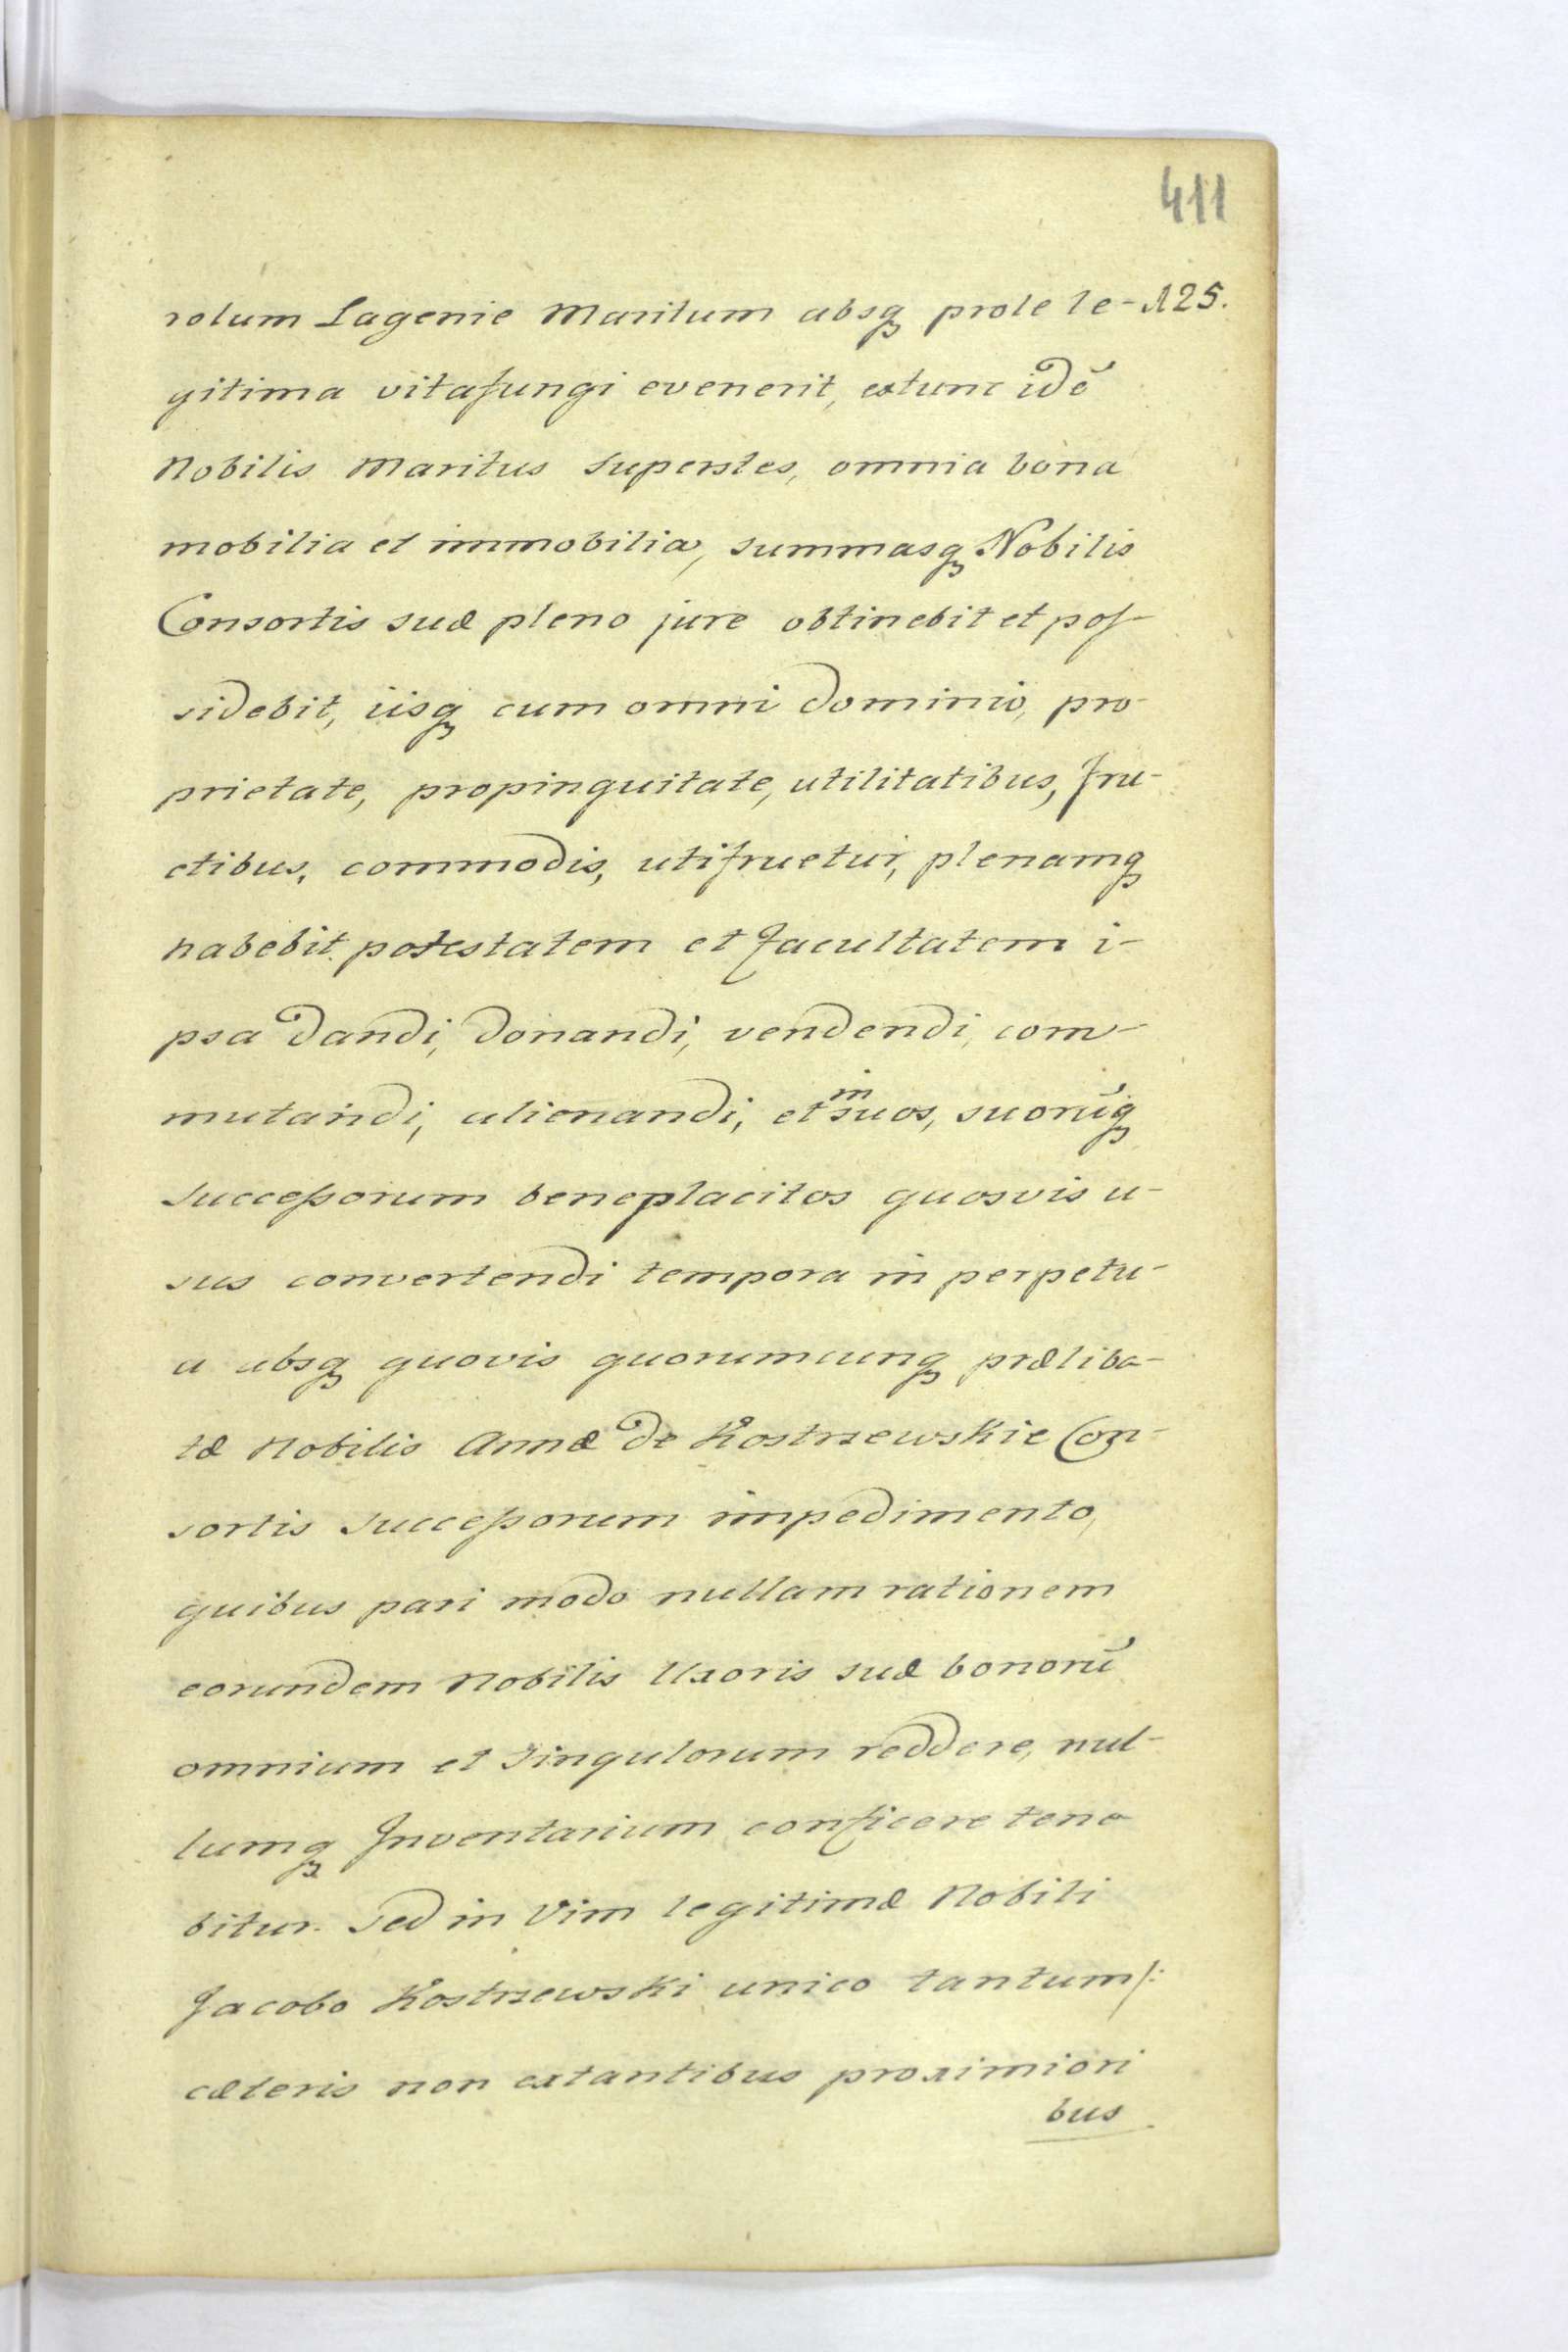 411
rolum Lagenie Maritum absq prole le- 125.
gitima vitafungi evenerit, extunc idē
Nobilis Maritus Superstes, omnia bona
mobilia et immobilia, summasq Nobilis
Consortis suæ pleno jure obtinebit et pos-
sidebit, iisq cum omni dominio, pro-
prietate, propinquitate, utilitatibus, fru-
ctibus, commodis, utifruetur, plenamq
habebit potestatem et facultatem i-
psa dandi, donandi, vendendi, com-
mutandi, alienandi, et in suos, suorūq
Successorum beneplacitos quosvis u-
sus convertendi tempora in perpetu-
a absq quovis quorumcunq præliba-
tæ Nobilis Annæ de Kostrzewskie Con-
sortis Successorum impedimento,
quibus pari modo nullam rationem
eorundem Nobilis Uxoris suæ bonorū
omnium et Singulorum reddere, nul-
lumq Inventarium conficere tene-
bitur. Sed in Vim legitimæ Nobili
Jacobo Kostrzewski unico tantum /:
cæteris non extantibus proximiori
bus